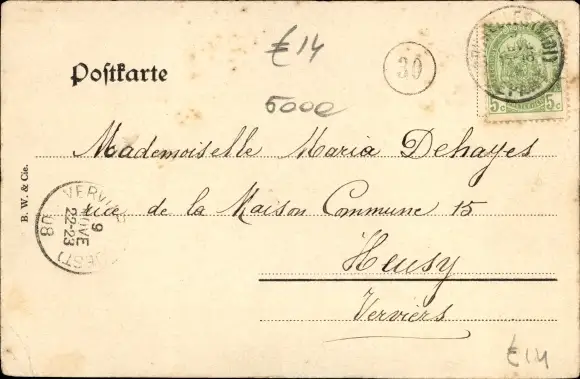 €14
30
Postkarte
5000
5c 5c
Mademoiselle Maria Dehayes
rue de la Maison Commune 15
Heusy
Verviers
B. W. & Cie.
VERVIE
9
NOVE
22-23
08
(OUEST)
€14